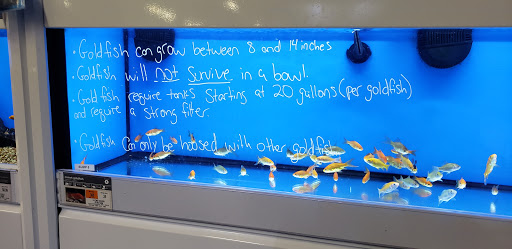 • Goldfish can grow between 8 and 14 inches
• Goldfish will not survive in a bowl.
• Goldfish require tanks starting at 20 gallons (per goldfish)
and require a strong filter.
• Goldfish can only be housed with other goldfish